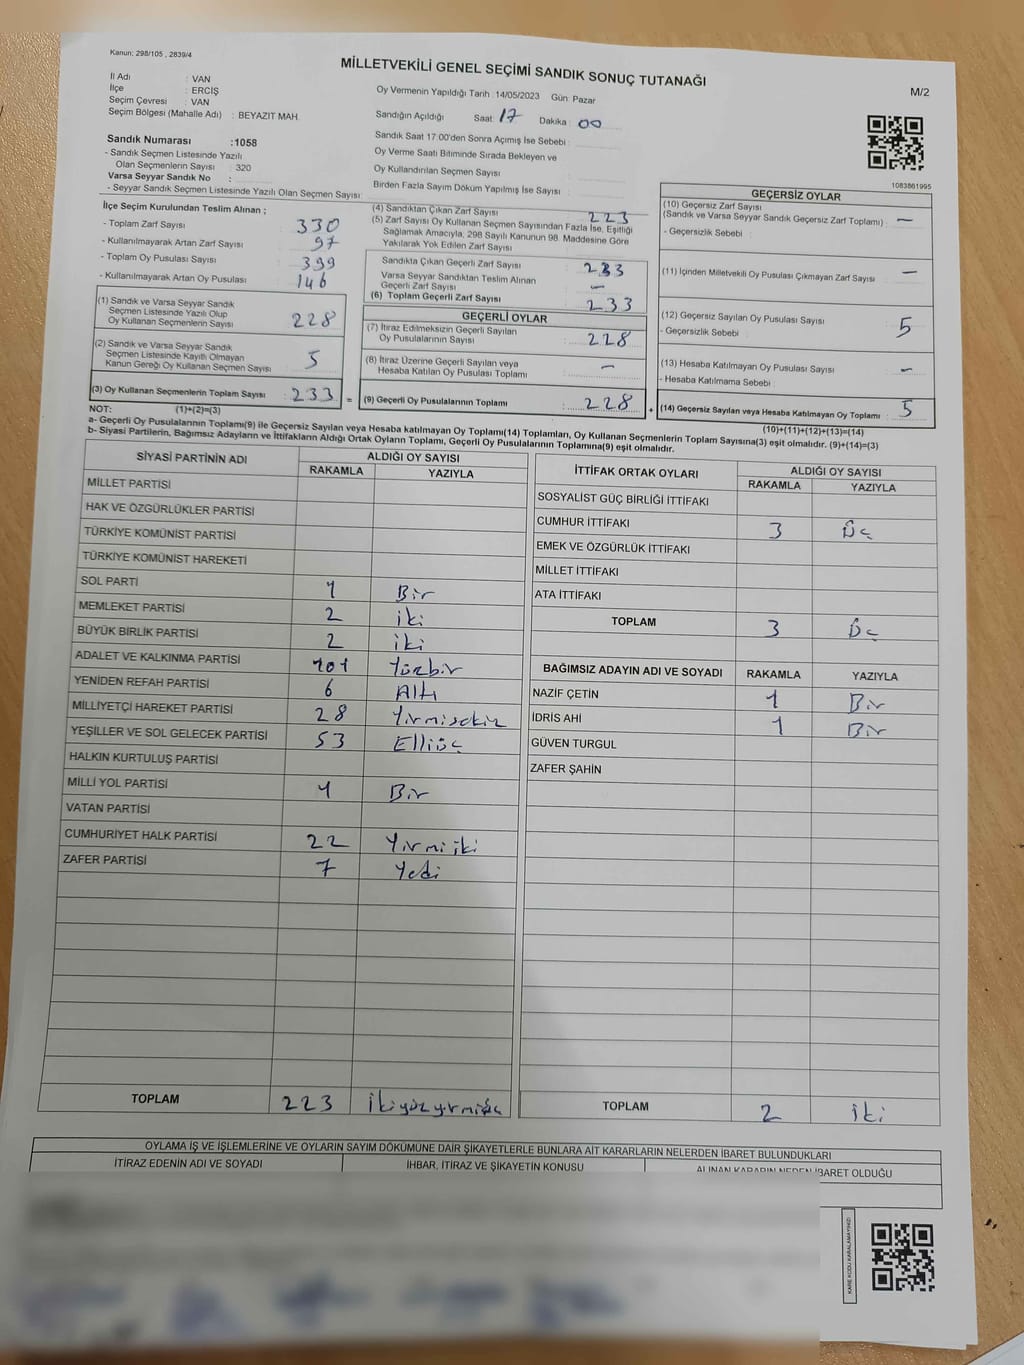 Kanun: 298/105 , 2839/4
MİLLETVEKİLİ GENEL SEÇİMİ SANDIK SONUÇ TUTANAĞI
M/2
İl Adı : VAN
İlçe : ERCİŞ
Seçim Çevresi : VAN
Seçim Bölgesi (Mahalle Adı) : BEYAZIT MAH.
Oy Vermenin Yapıldığı Tarih :14/05/2023 Gün: Pazar
Sandığın Açıldığı Saat : 17 Dakika : 00
Sandık Saat 17:00'den Sonra Açımış İse Sebebi :
Oy Verme Saati Bitiminde Sırada Bekleyen ve
Oy Kullandırılan Seçmen Sayısı :
Birden Fazla Sayım Döküm Yapılmış İse Sayısı :
Sandık Numarası :1058
- Sandık Seçmen Listesinde Yazılı
Olan Seçmenlerin Sayısı : 320
Varsa Seyyar Sandık No :
- Seyyar Sandık Seçmen Listesinde Yazılı Olan Seçmen Sayısı :
1083861995
İlçe Seçim Kurulundan Teslim Alınan ;
- Toplam Zarf Sayısı : 330
- Kullanılmayarak Artan Zarf Sayısı : 97
- Toplam Oy Pusulası Sayısı : 399
- Kullanılmayarak Artan Oy Pusulası : 146
(1) Sandık ve Varsa Seyyar Sandık
Seçmen Listesinde Yazılı Olup
Oy Kullanan Seçmenlerin Sayısı : 228
(2) Sandık ve Varsa Seyyar Sandık
Seçmen Listesinde Kayıtlı Olmayan
Kanun Gereği Oy Kullanan Seçmen Sayısı : 5
(3) Oy Kullanan Seçmenlerin Toplam Sayısı : 233 =
(4) Sandıktan Çıkan Zarf Sayısı : 223
(5) Zarf Sayısı Oy Kullanan Seçmen Sayısından Fazla İse, Eşitliği
Sağlamak Amacıyla, 298 Sayılı Kanunun 98. Maddesine Göre
Yakılarak Yok Edilen Zarf Sayısı :
Sandıkta Çıkan Geçerli Zarf Sayısı : 233
Varsa Seyyar Sandıktan Teslim Alınan
Geçerli Zarf Sayısı : –
(6) Toplam Geçerli Zarf Sayısı : 233
GEÇERLİ OYLAR
(7) İtiraz Edilmeksizin Geçerli Sayılan
Oy Pusulalarının Sayısı : 228
(8) İtiraz Üzerine Geçerli Sayılan veya
Hesaba Katılan Oy Pusulası Toplamı : –
(9) Geçerli Oy Pusulalarının Toplamı : 228 +
GEÇERSİZ OYLAR
(10) Geçersiz Zarf Sayısı
(Sandık ve Varsa Seyyar Sandık Geçersiz Zarf Toplamı) : –
- Geçersizlik Sebebi :
(11) İçinden Milletvekili Oy Pusulası Çıkmayan Zarf Sayısı : –
(12) Geçersiz Sayılan Oy Pusulası Sayısı : 5
- Geçersizlik Sebebi :
(13) Hesaba Katılmayan Oy Pusulası Sayısı : –
- Hesaba Katılmama Sebebi :
(14) Geçersiz Sayılan veya Hesaba Katılmayan Oy Toplamı : 5
NOT: (1)+(2)=(3)
(10)+(11)+(12)+(13)=(14)
a- Geçerli Oy Pusulalarının Toplamı(9) ile Geçersiz Sayılan veya Hesaba katılmayan Oy Toplamı(14) Toplamları, Oy Kullanan Seçmenlerin Toplam Sayısına(3) eşit olmalıdır. (9)+(14)=(3)
b- Siyasi Partilerin, Bağımsız Adayların ve İttifakların Aldığı Ortak Oyların Toplamı, Geçerli Oy Pusulalarının Toplamına(9) eşit olmalıdır.
SİYASİ PARTİNİN ADI ALDIĞI OY SAYISI
RAKAMLA YAZIYLA
MİLLET PARTİSİ
HAK VE ÖZGÜRLÜKLER PARTİSİ
TÜRKİYE KOMÜNİST PARTİSİ
TÜRKİYE KOMÜNİST HAREKETİ
SOL PARTİ 1 Bir
MEMLEKET PARTİSİ 2 iki
BÜYÜK BİRLİK PARTİSİ 2 iki
ADALET VE KALKINMA PARTİSİ 101 Yüzbir
YENİDEN REFAH PARTİSİ 6 Altı
MİLLİYETÇİ HAREKET PARTİSİ 28 Yirmisekiz
YEŞİLLER VE SOL GELECEK PARTİSİ 53 Elliüç
HALKIN KURTULUŞ PARTİSİ
MİLLİ YOL PARTİSİ 1 Bir
VATAN PARTİSİ
CUMHURİYET HALK PARTİSİ 22 Yirmiiki
ZAFER PARTİSİ 7 Yedi
TOPLAM 223 ikiyüzyirmiüç
İTTİFAK ORTAK OYLARI ALDIĞI OY SAYISI
RAKAMLA YAZIYLA
SOSYALİST GÜÇ BİRLİĞİ İTTİFAKI
CUMHUR İTTİFAKI 3 Üç
EMEK VE ÖZGÜRLÜK İTTİFAKI
MİLLET İTTİFAKI
ATA İTTİFAKI
TOPLAM 3 Üç
BAĞIMSIZ ADAYIN ADI VE SOYADI RAKAMLA YAZIYLA
NAZİF ÇETİN 1 Bir
İDRİS AHİ 1 Bir
GÜVEN TURGUL
ZAFER ŞAHİN
TOPLAM 2 iki
OYLAMA İŞ VE İŞLEMLERİNE VE OYLARIN SAYIM DÖKÜMÜNE DAİR ŞİKAYETLERLE BUNLARA AİT KARARLARIN NELERDEN İBARET BULUNDUKLARI
İTİRAZ EDENİN ADI VE SOYADI İHBAR, İTİRAZ VE ŞİKAYETİN KONUSU ALINAN KARARIN NEDEN İBARET OLDUĞU
KARE KODU KARALAMAYINIZ!